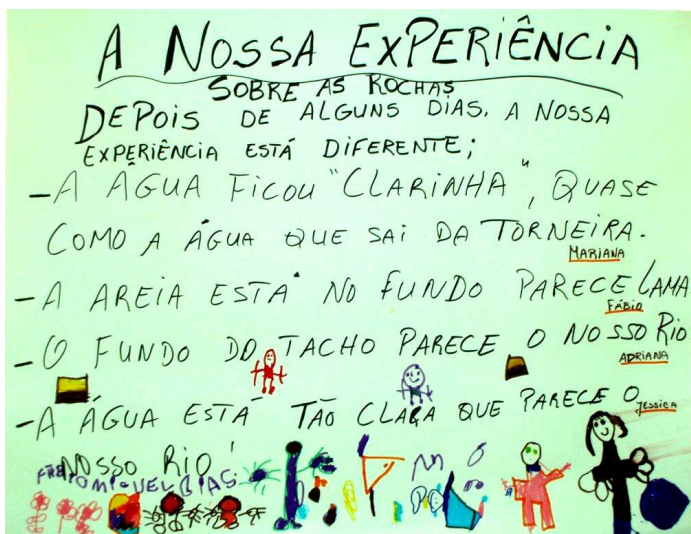 A NOSSA EXPERIÊNCIA
SOBRE AS ROCHAS
DEPOIS DE ALGUNS DIAS, A NOSSA
EXPERIÊNCIA ESTÁ DIFERENTE;
- A ÁGUA FICOU "CLARINHA", QUASE
COMO A ÁGUA QUE SAI DA TORNEIRA.
MARIANA
- A AREIA ESTÁ NO FUNDO PARECE LAMA
FÁBIO
- O FUNDO DO TACHO PARECE O NOSSO RIO
ADRIANA
- A ÁGUA ESTÁ TÃO CLARA QUE PARECE O
JESSICA
NOSSO RIO!
MIGUEL